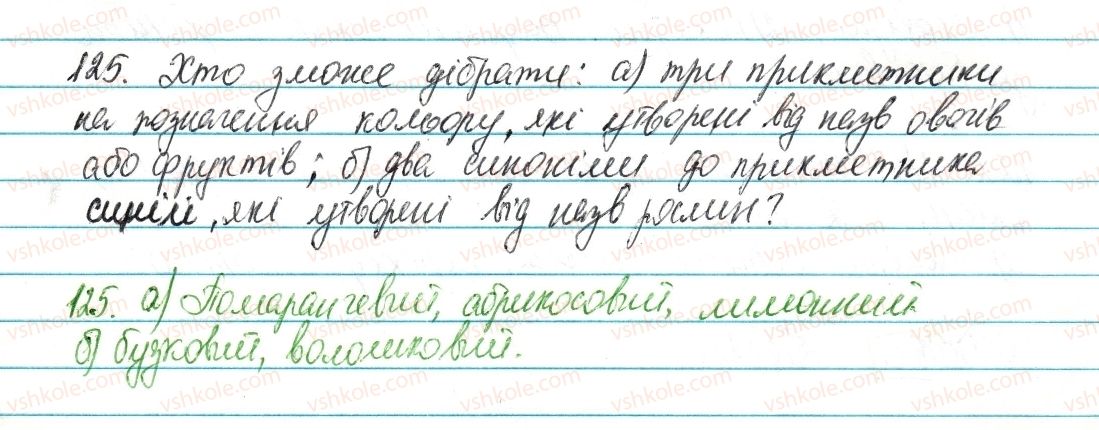 125. Хто зможе дібрати: а) три прикметники
на позначення кольору, які утворені від назв овочів
або фруктів; б) два синоніми до прикметника
синій, які утворені від назв рослин?
125. а) Помаранчевий, абрикосовий, лимонний
б) бузковий, волошковий.